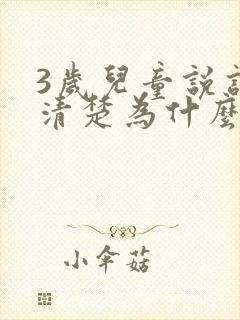 3歲兒童說
清楚為什麼
小傘菇